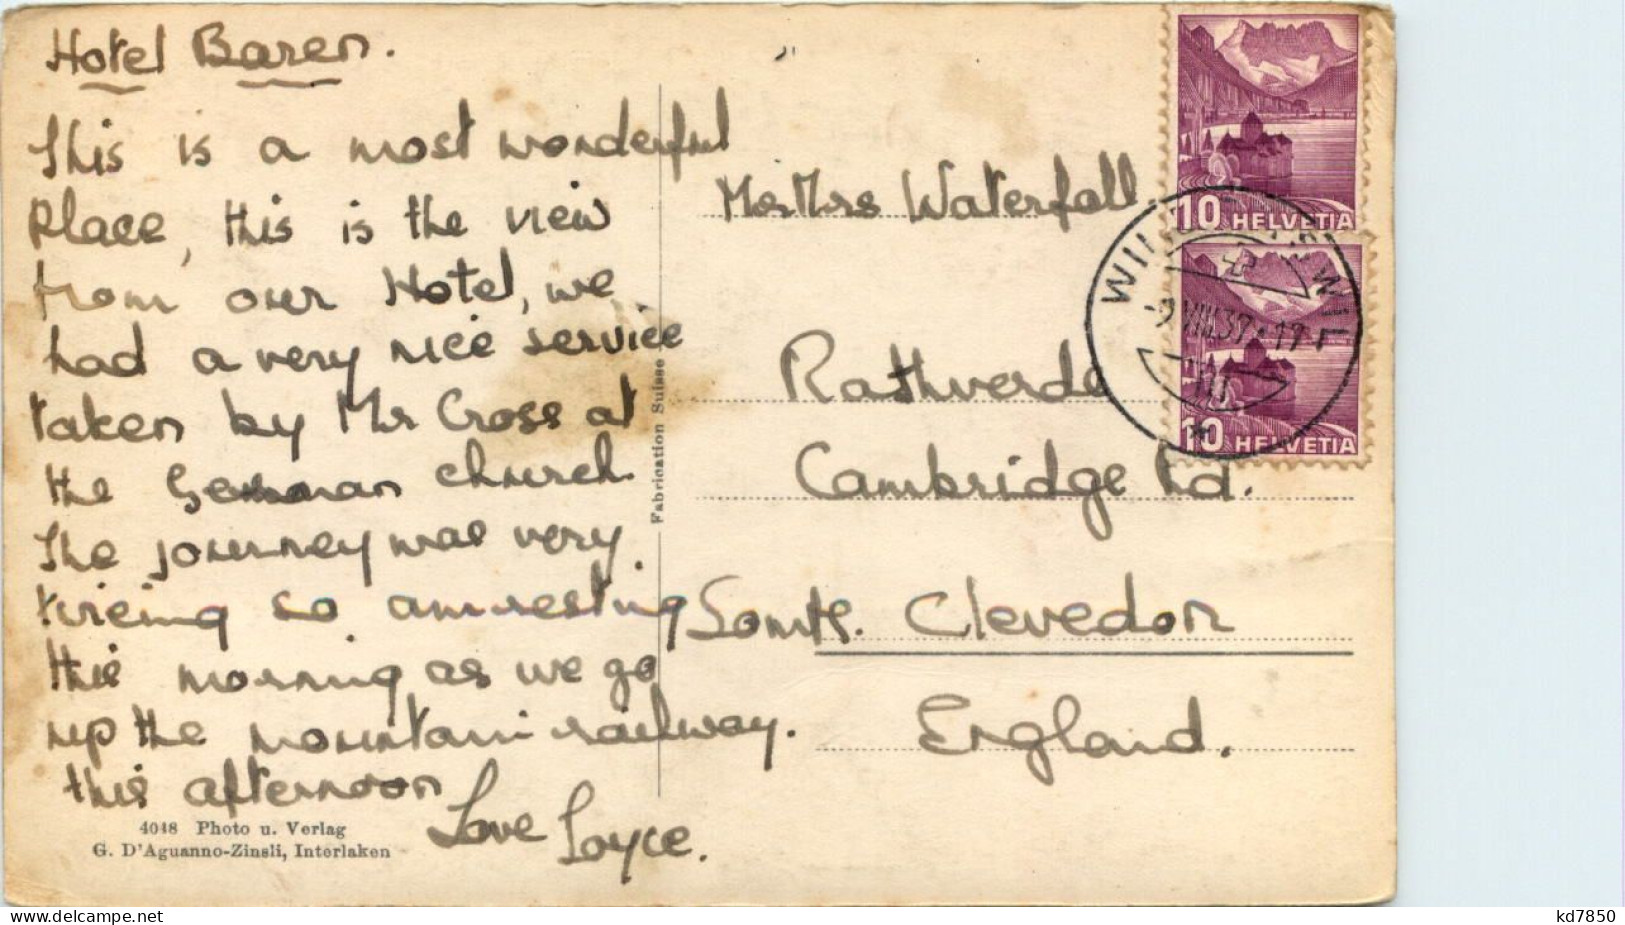 Hotel Baren.
This is a most wonderful
Place, this is the view
from our Hotel, we
had a very nice service
taken by Mr Cross at
the German church
The journey was very
tireing so am resting
this morning as we go
up the mountain railway.
this afternoon
Love Joyce.
4018 Photo u. Verlag
G. D'Aguanno-Zinsli, Interlaken
Fabrication Suisse
Mr Mrs Waterfall
Rathverde
Cambridge Rd.
Somts. Clevedon
England.
10 HELVETIA
10 HELVETIA
-9.VIII.37.-17
kd7850